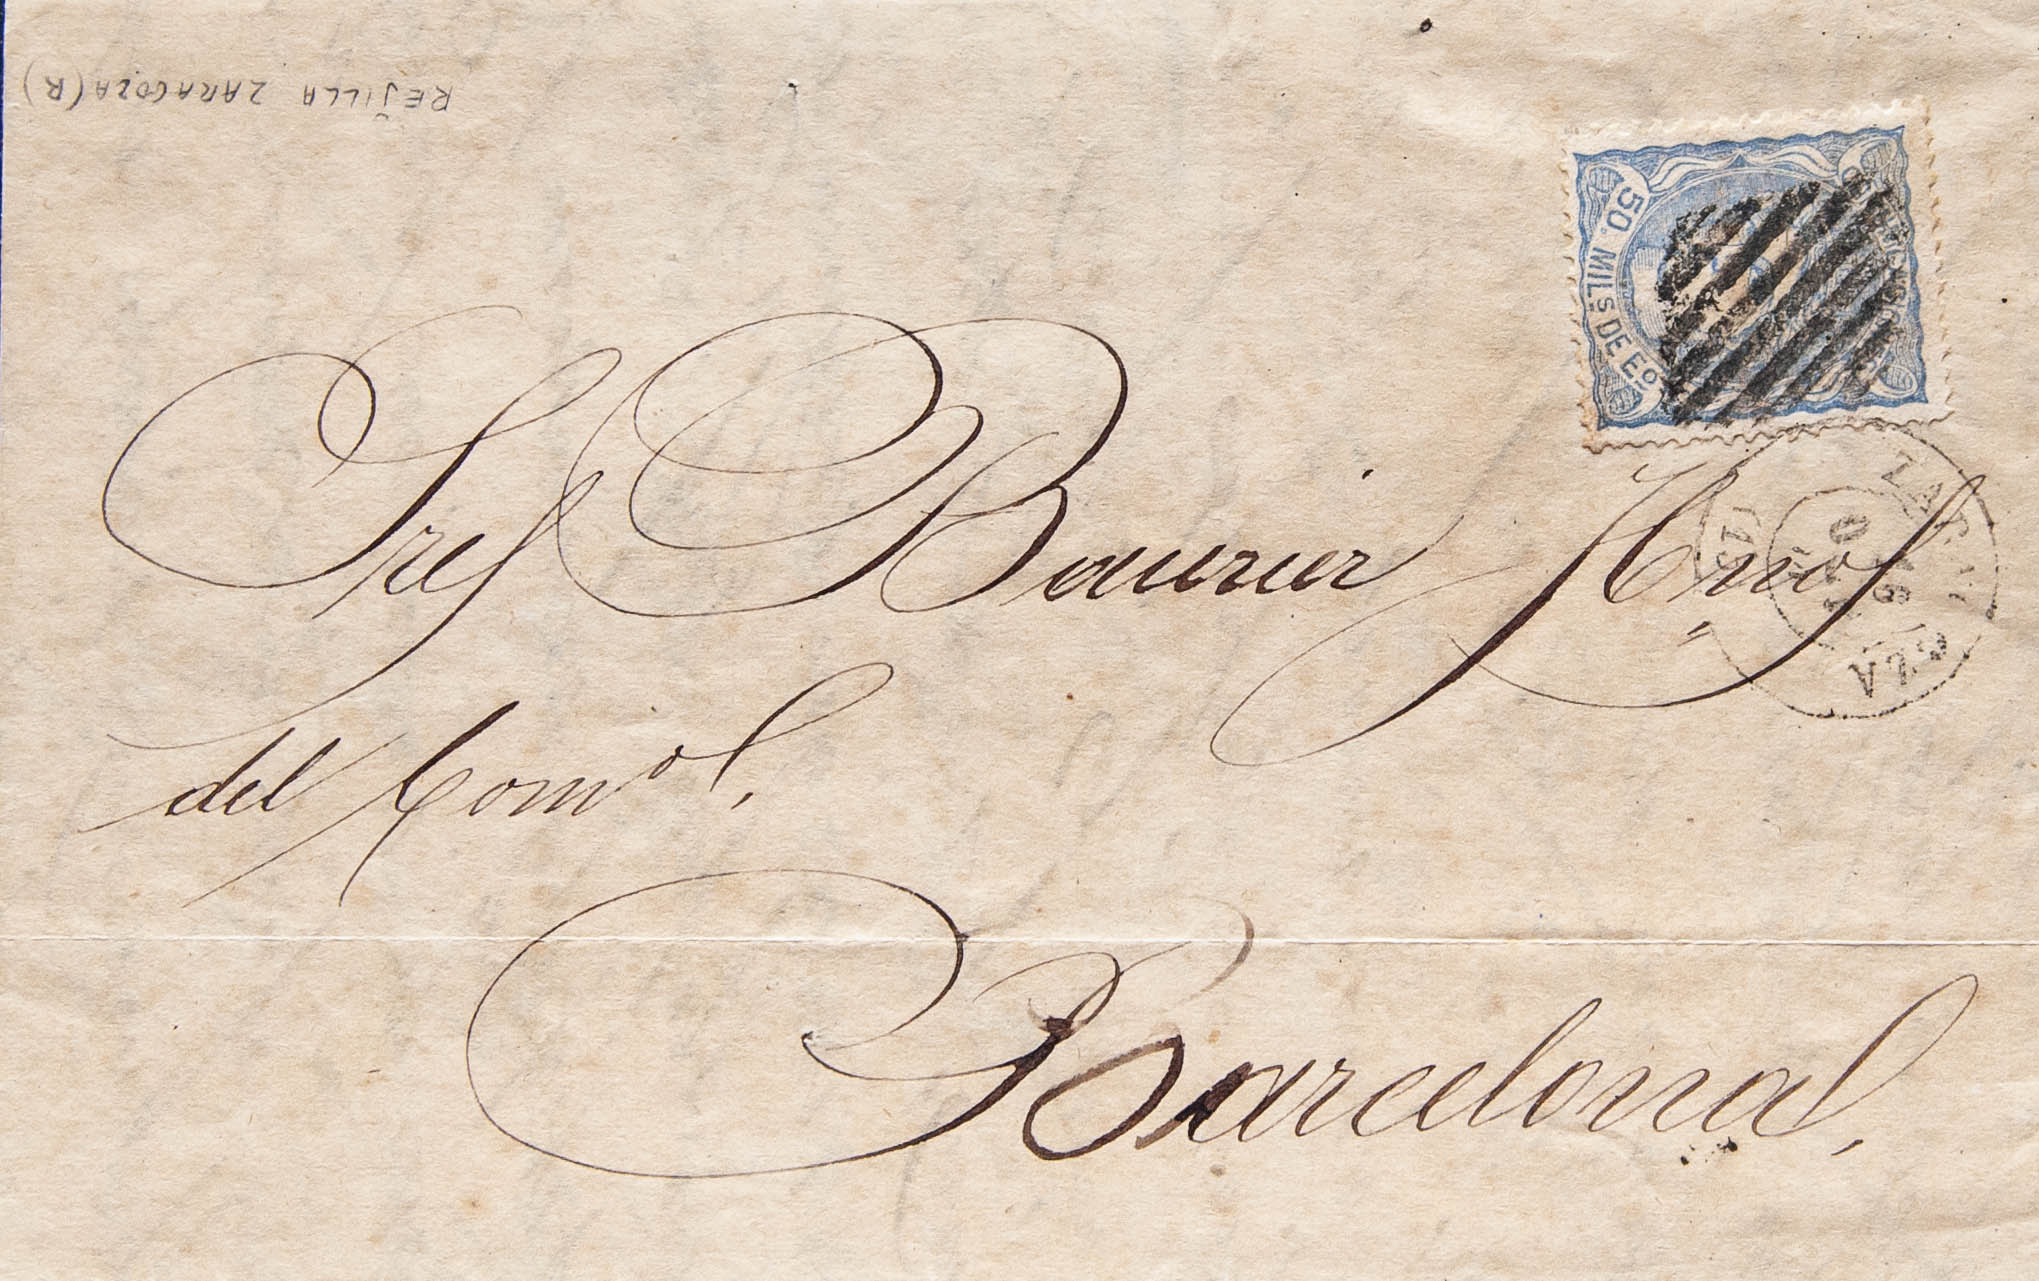 REJILLA ZARAGOZA (R)
50. MILS DE Eo
ZARAGOZA
(13)
Sres Baurier Hnos
del Comol.
Barcelona.